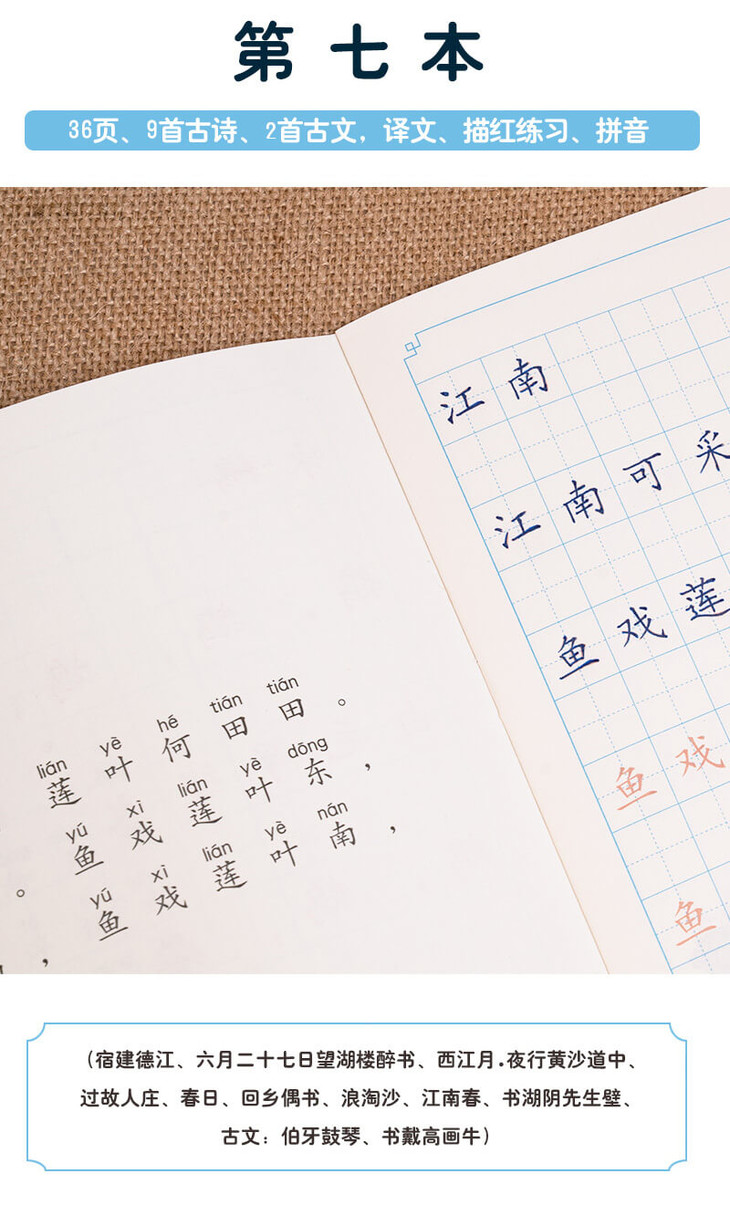 第七本
36页、9首古诗、2首古文，译文、描红练习、拼音
江南
江南可采
鱼戏莲
鱼戏
鱼
lián yè hé tián tián
莲叶何田田。
yú xì lián yè dōng
鱼戏莲叶东，
yú xì lián yè nán
。鱼戏莲叶南，
，
（宿建德江、六月二十七日望湖楼醉书、西江月.夜行黄沙道中、
过故人庄、春日、回乡偶书、浪淘沙、江南春、书湖阴先生壁、
古文：伯牙鼓琴、书戴高画牛）